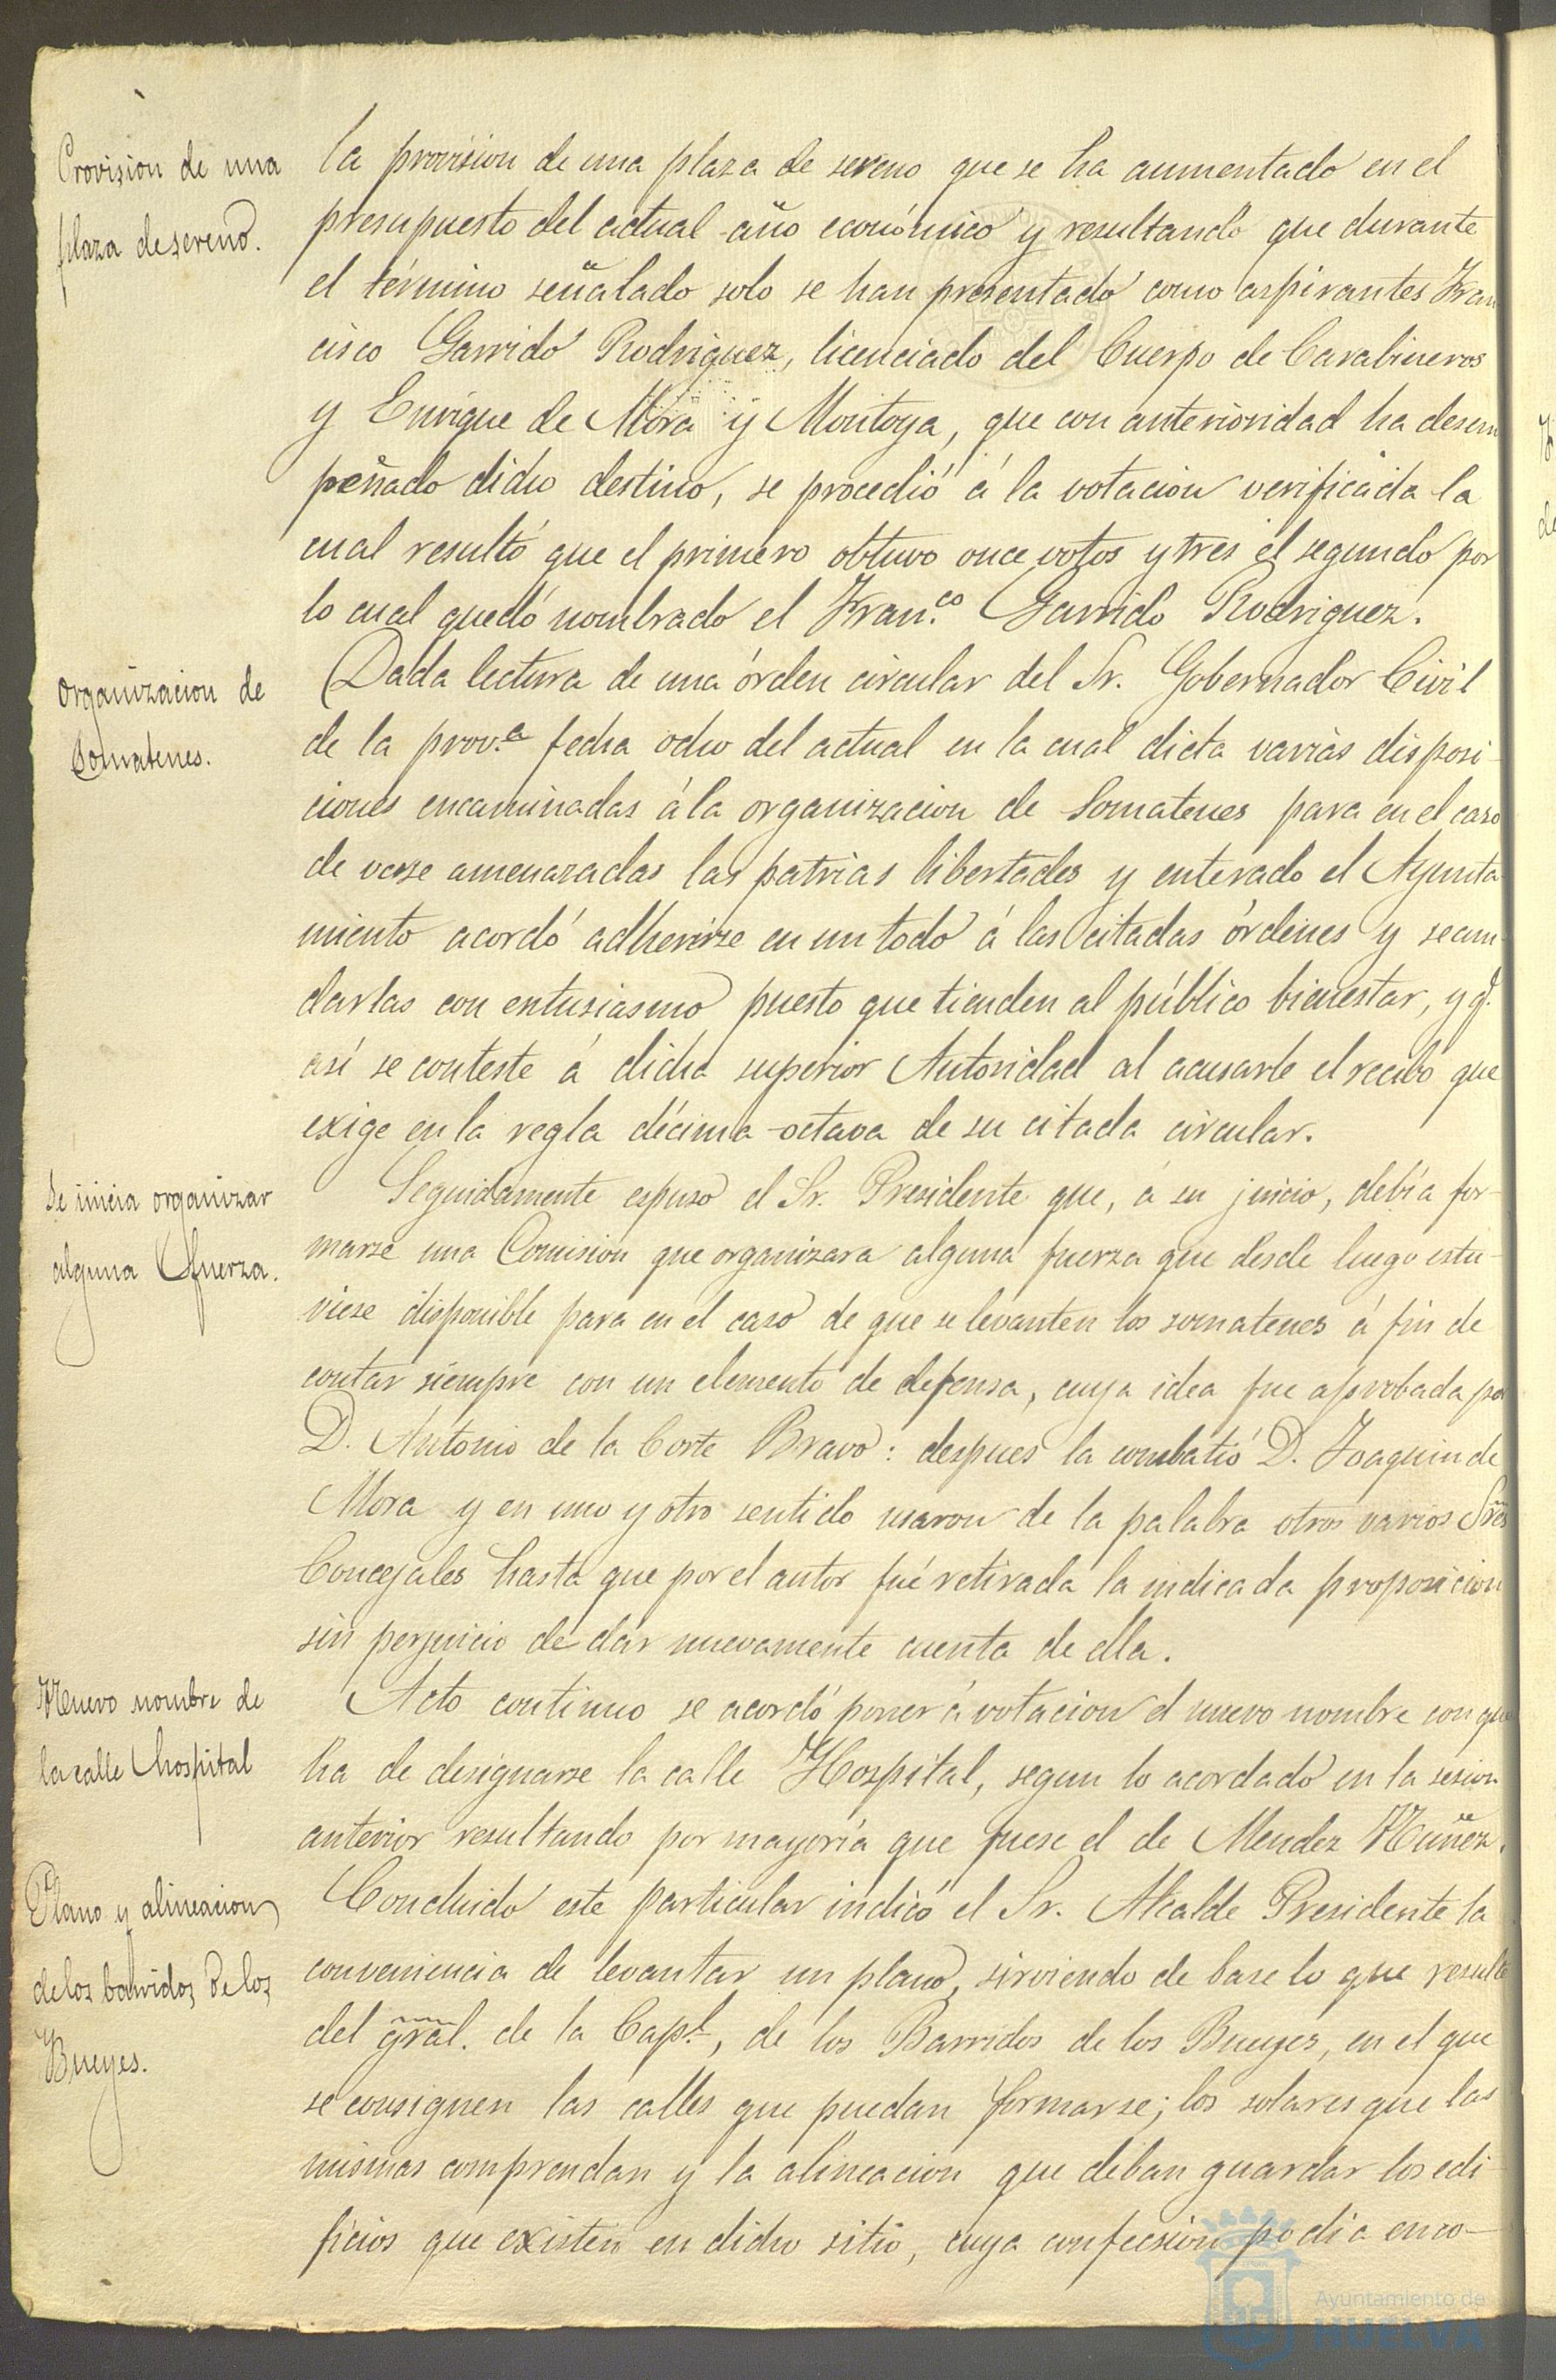 Provision de una
plaza de sereno.
la provision de una plaza de sereno que se ha aumentado en el
presupuesto del actual año económico y resultando que durante
el término señalado solo se han presentado como aspirantes Fran
cisco Garrido Rodriguez, licenciado del Cuerpo de Carabineros
y Enrique de Mora y Montoya, que con anterioridad ha desem
peñado dicho destino, se procedió á la votacion verificada la
cual resultó que el primero obtuvo once votos y tres el segundo por
lo cual quedó nombrado el Fran.co Garrido Rodriguez.
Organizacion de
Somatenes.
Dada lectura de una órden circular del Sr. Gobernador Civil
de la prov.a fecha ocho del actual en la cual dicta varias disposi-
ciones encaminadas á la organizacion de Somatenes para en el caso
de verse amenazadas las patrias libertades y enterado el Ayunta
miento acordó adherirse en un todo á las citadas órdenes y secun-
darlas con entusiasmo puesto que tienden al público bienestar, y q.
así se conteste á dicha superior Autoridad al acusarle el recibo que
exige en la regla décima-octava de su citada circular.
Se inicia organizar
alguna fuerza.
Seguidamente espuso el Sr. Presidente que, á su juicio, debía for-
marse una Comision que organizara alguna fuerza que desde luego estu-
viese disponible para en el caso de que se levanten los somatenes á fin de
contar siempre con un elemento de defensa, cuya idea fue aprobada por
D. Antonio de la Corte Bravo: despues la combatió D. Joaquin de
Mora y en uno y otro sentido usaron de la palabra otros varios Sres
Concejales hasta que por el autor fué retirada la indicada proposicion
sin perjuicio de dar nuevamente cuenta de ella.
Nuevo nombre de
la calle hospital
Acto continuo se acordó poner á votacion el nuevo nombre con que
ha de designarse la calle Hospital, segun lo acordado en la sesion
anterior resultando por mayoría que fuese el de Mendez Nuñez.
Plano y alineacion
de los barridos de los
Bueyes.
Concluido este particular indicó el Sr. Alcalde Presidente la
conveniencia de levantar un plano, sirviendo de base lo que resulte
del gral. de la Capl, de los Barridos de los Bueyes, en el que
se consignen las calles que puedan formarse; los solares que las
mismas comprendan y la alineacion que deban guardar los edi-
ficios que existen en dicho sitio, cuya confeccion podia enco-
Ayuntamiento de
HUELVA